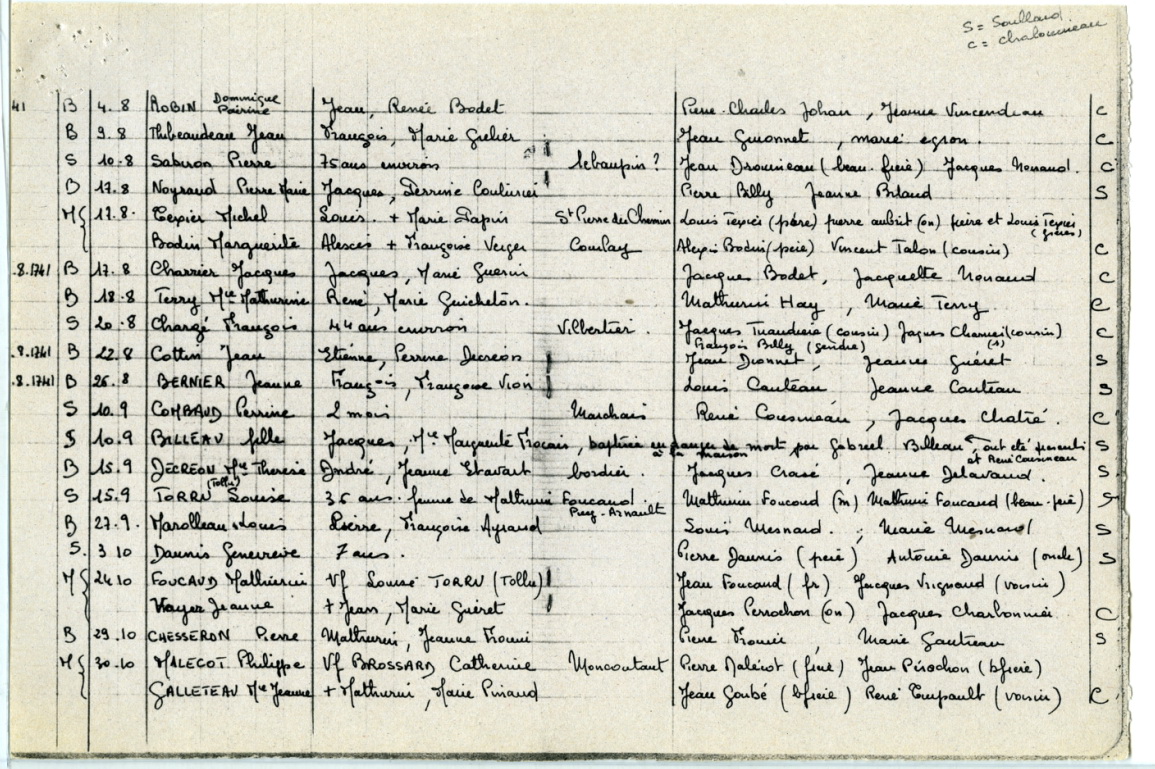 S = Soullard
C = Chalonneau
41 B 4.8 ROBIN Dominique Jean, Renée Bodet Pierre-Charles Johan, Jeanne Vincendeau C
B 9.8 Thibeaudeau Jean François, Marie Grelier Jean Guionnet, marie egron. C
S 10.8 Sabiron Pierre 75 ans environ lebaupin ? Jean Drouineau (beau-frère) Jacques Nonaud. C
B 17.8 Noyraud Pierre Marie Jacques, Perrine Pierre Billy Jeanne S
M { 17.8. Texier Michel Louis. + Marie Papin St Pierre du Chemin Louis Texier (père) pierre aubrit (on) frère et Louis Texier (frères)
Bodin Marguerite Alexis + Françoise Verger Courlay Alexis Bodin (père) Vincent Talon (cousin) C
.8.1741 B 17.8 Charrier Jacques Jacques, Marie Guerin Jacques Bodet, Jacquette Nonaud C
B 18.8 Terry Mie Mathurine René, Marie Guicheton. Mathurin Hay, Marie Terry C
S 20.8 Chargé François 44 ans environ Vilbertier. Jacques (cousin) Jaques (cousin) C
François Billy (gendre) (s)
.8.1741 B 22.8 Cottin Jean Etienne, Perrine Decreon Jean Dionnet, Jeanne Guéret S
.8.1741 B 26.8 BERNIER Jeanne François, Françoise Vion Louis Cauteau Jeanne Cauteau S
S 10.9 COMBAUD Perrine 2 mois Marchais René Cousineau, Jacques Chatré. C
S 10.9 BILLEAU fille Jacques, Mie Marguerite, baptisée en danger de mort par Gabriel Billeau, ont été présents S
à la maison et René Cousineau
B 15.9 DECREON Mie Therese André, Jeanne Etavart bordier. Jacques Crasé, Jeanne Delavaud. S
(Tollu)
S 15.9 TORRU Louise 36 ans. femme de Mathurin Foucaud. Mathurin Foucaud (m) Mathurin Foucaud (beau-père) S
Puy-Arnault
B 27.9. Marolleau Louis Pierre, Françoise Ayraud Louis Mesnard.; Marie Mesnard S
S. 3.10 Daunis Genevieve 7 ans. Pierre Daunis (père) Antoine Daunis (oncle) S
M { 24.10 FOUCAUD Mathurin Vf Louise TORRU (Tollu) Jean Foucaud (fr) Jacques Vrignaud (voisin)
Voyer Jeanne + Jean, Marie Guéret Jacques Perrochon (on) Jacques Charbonnier. C
B 29.10 CHESSERON Pierre Mathurin, Jeanne Pierre, Marie Gautreau S
M { 30.10 MALECOT Philippe Vf BROSSARD Catherine Moncoutant Pierre Malécot (frère) Jean Pirochon (bfrère)
GALLETEAU Mie Jeanne + Mathurin, Marie Pinaud Jean Goubé (bfrère) René (voisin) C